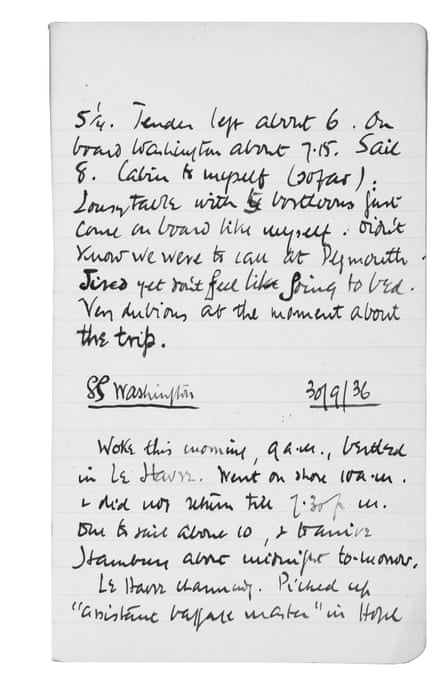 5/4. Tender left about 6. On
board Washington about 7.15. Sail
8. Cabin to myself (so far).
Lousy table with bostoons just
come on board like myself. Didn't
know we were to call at Plymouth.
Tired yet don't feel like going to bed.
Very dubious at the moment about
the trip.
SS Washington 30/9/36
Woke this morning, 9 a.m., berthed
in Le Havre. Went on shore 10 a.m.
& did not return till 7.30 p.m.
Due to sail about 10, & to arrive
Hamburg about midnight to-morrow.
Le Havre charming. Picked up
"assistant baggage master" in Hotel